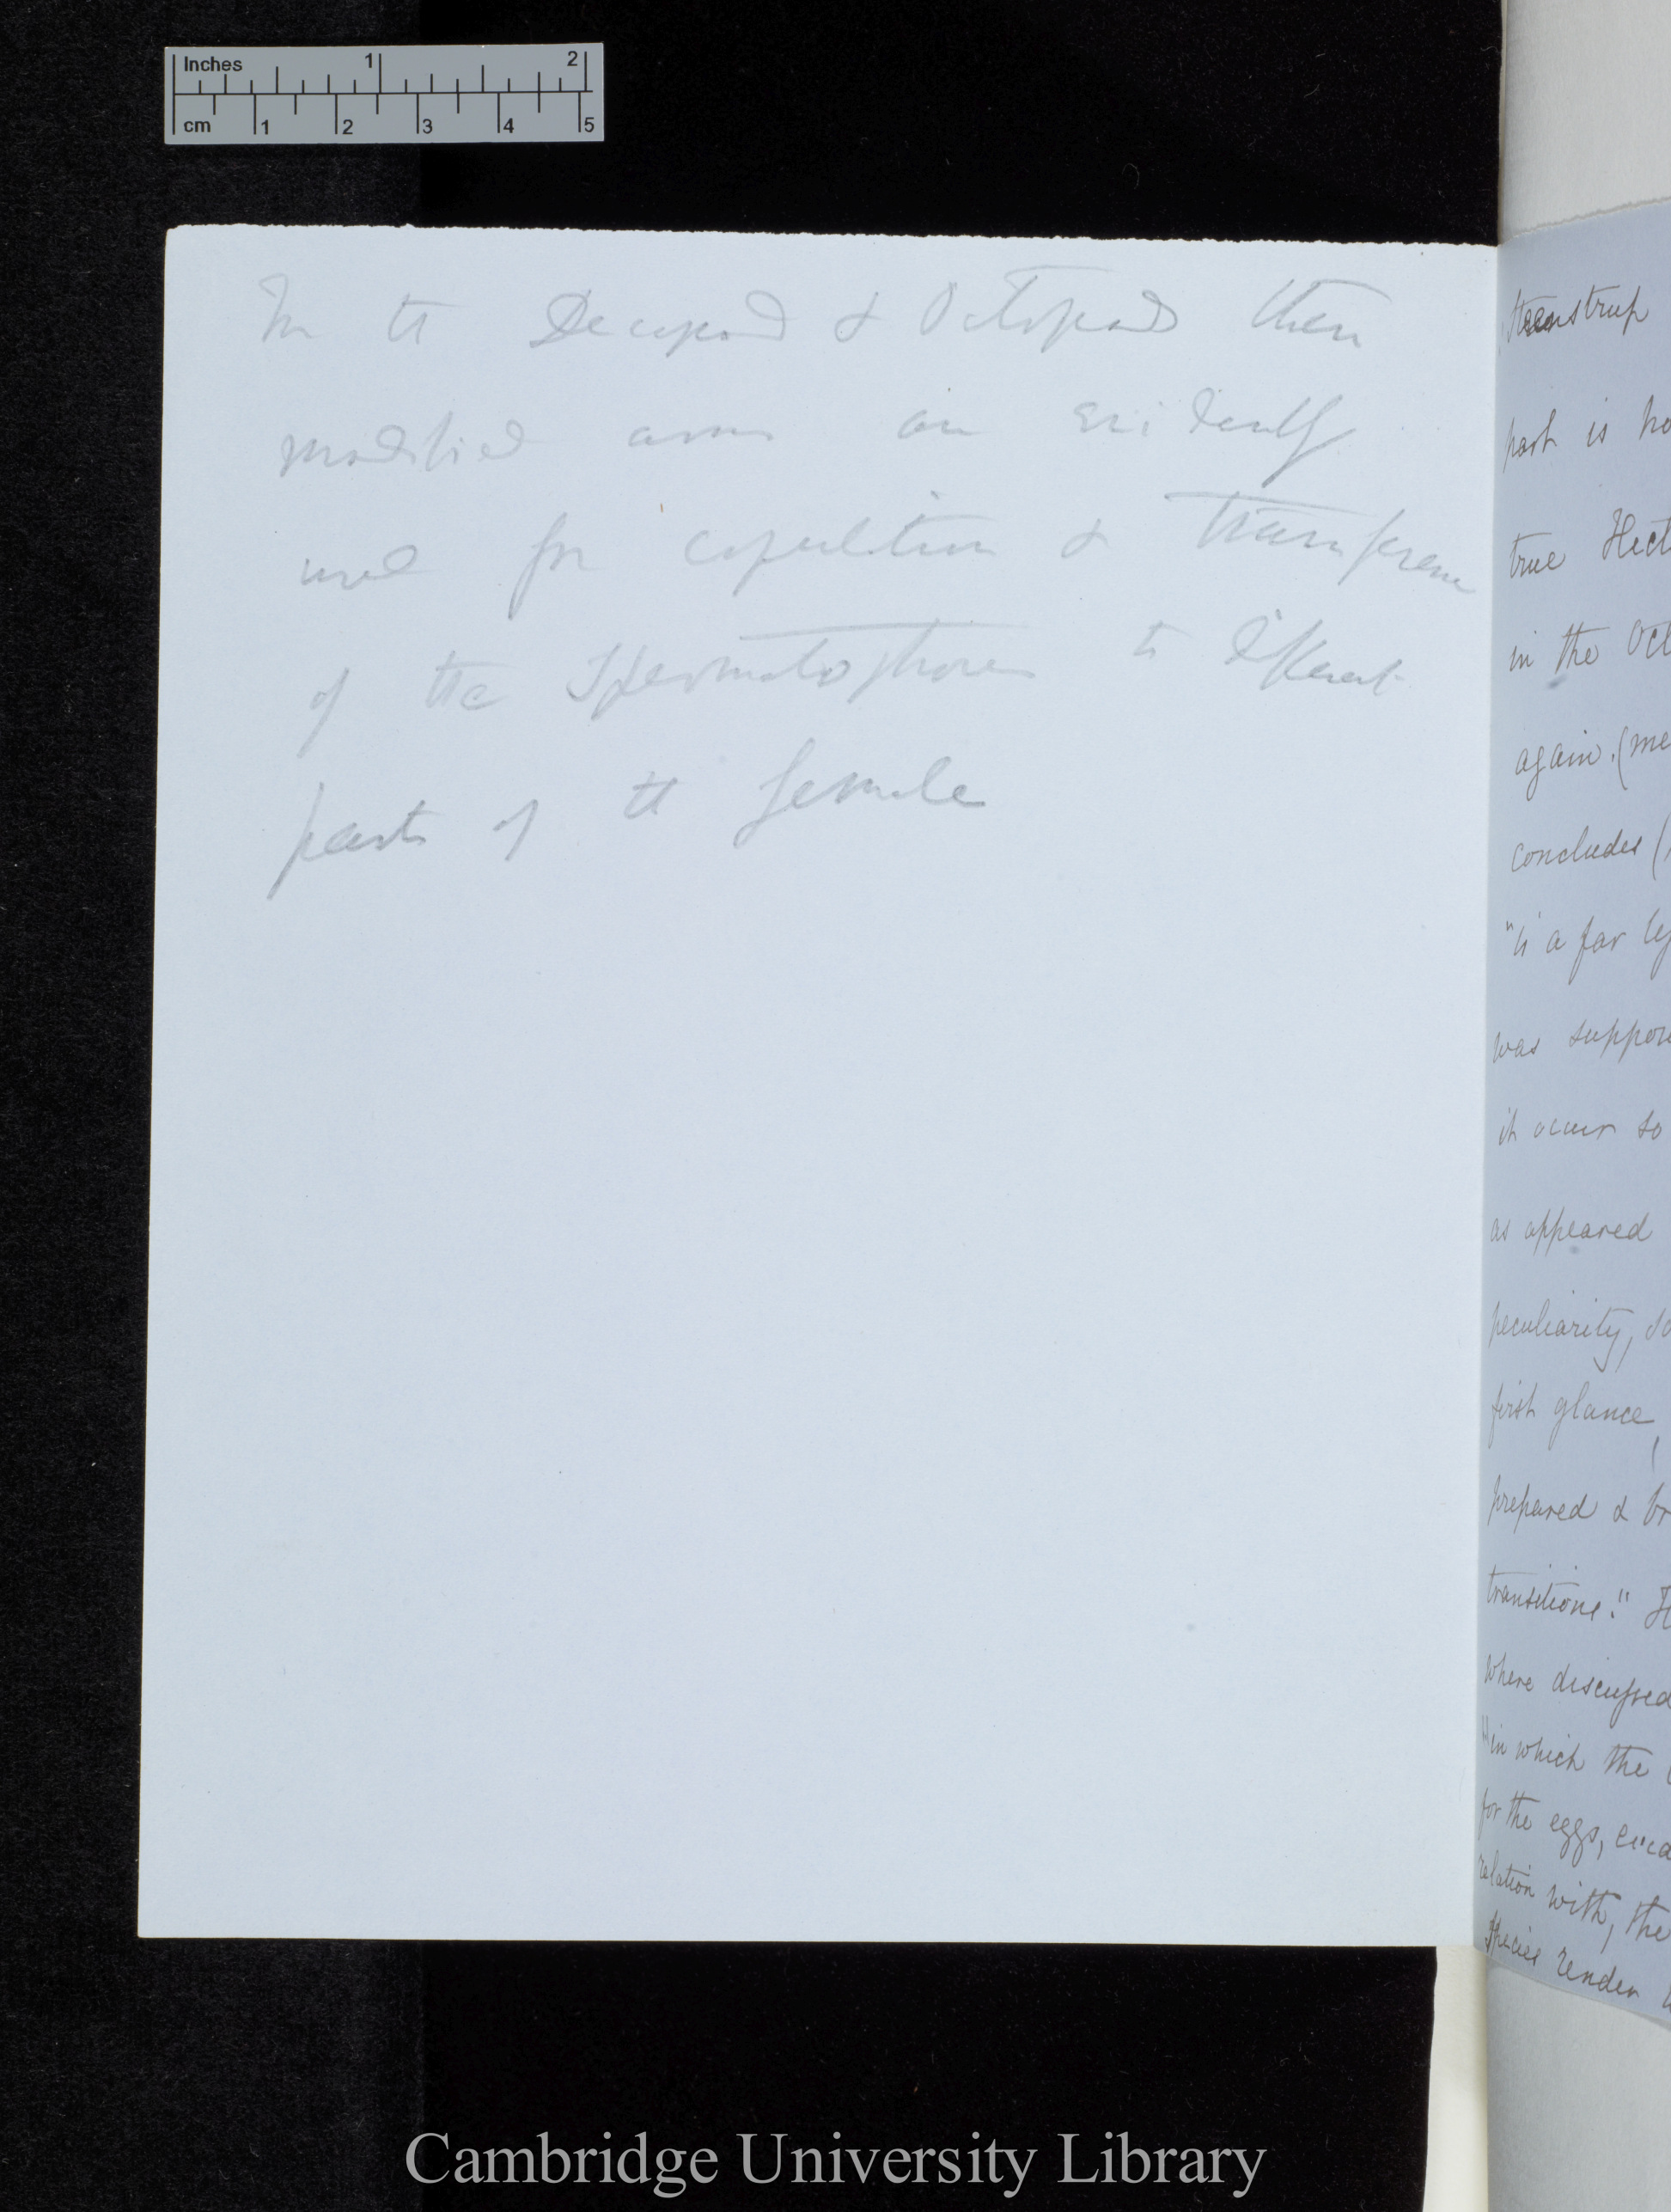 Inches 1 2
cm 1 2 3 4 5
In the Decapod & Octopods these
modified arms are evidently
used for copulation & transference
of the Spermatophores to different
parts of the female
Steenstrup
part is
true Hect
in the Oct
again. (me
concludes (
"is a far
was
it occur so
as appeared
peculiarity, so
first glance,
prepared & br
transitions."
where discussed
"in which the
for the eggs,
relation with, the
species render
Cambridge University Library